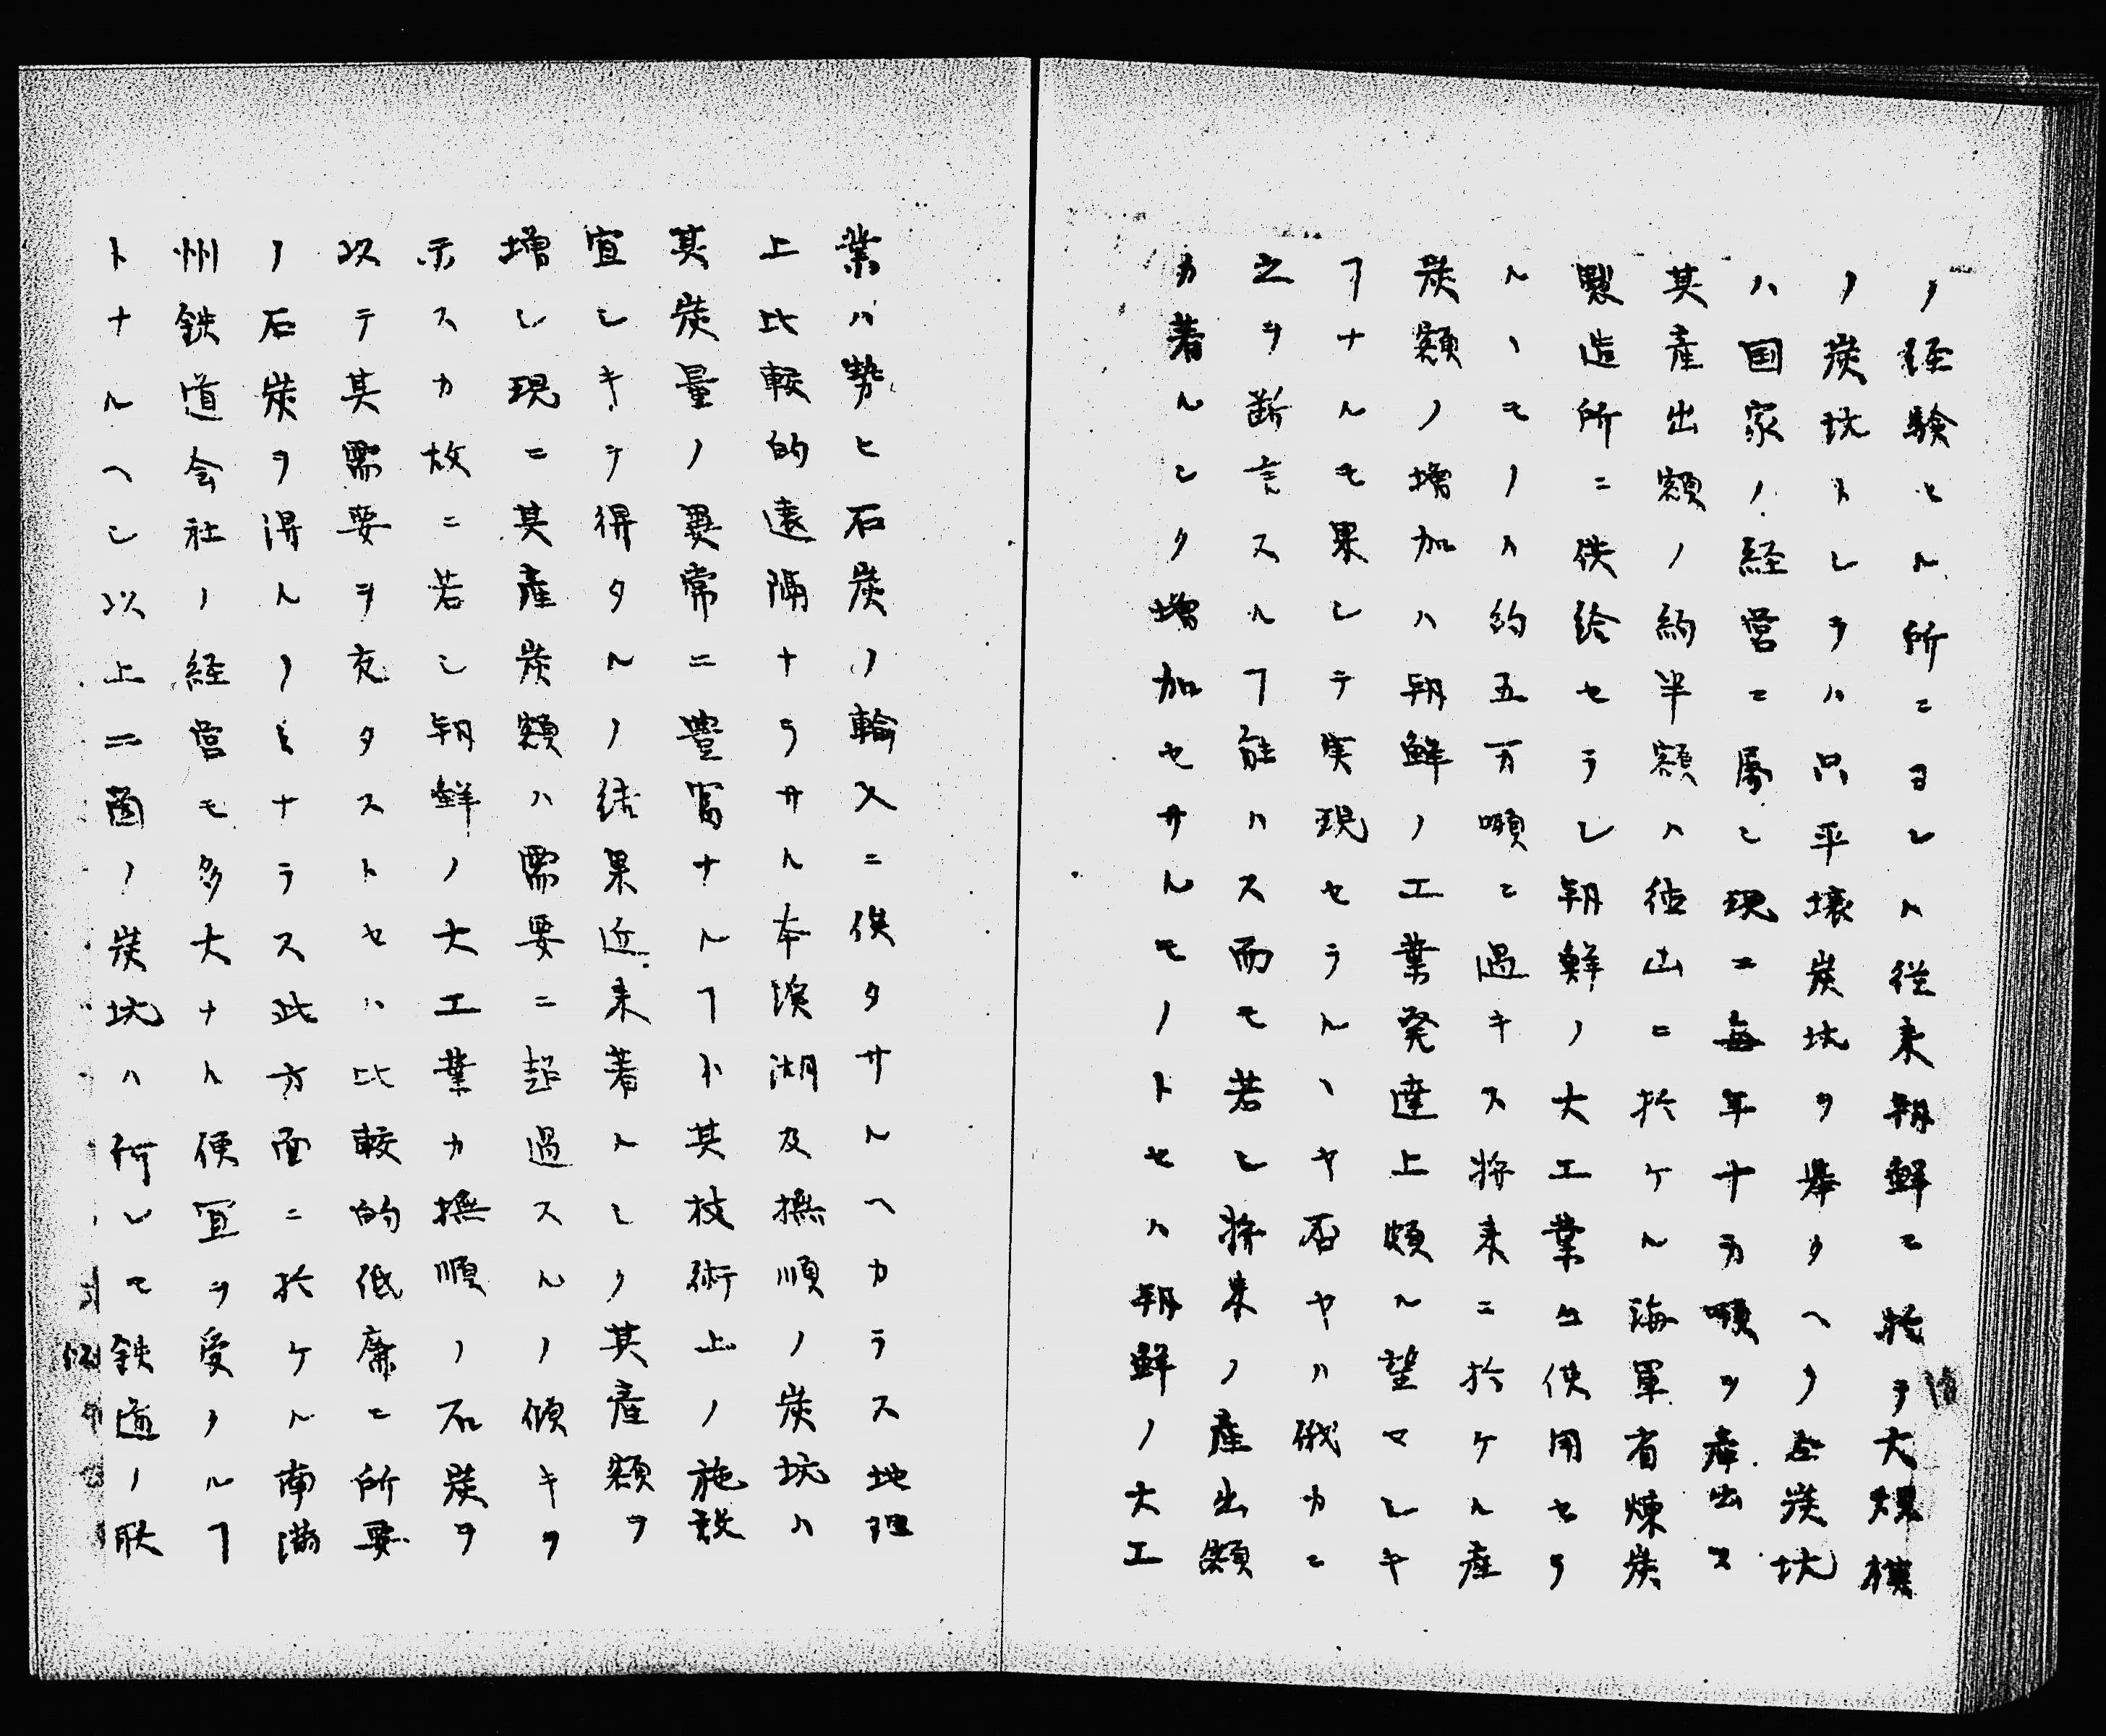 ノ経験セル所ニヨレハ従来朝鮮ニ於テ大煤模
ノ炭坑トシテハ只平壌炭坑ヲ挙クヘク此炭坑
ハ国家ノ経営ニ属シ現ニ毎年十万噸ヲ産出ス
其産出額ノ約半額ハ徳山ニ於ケル海軍省煉炭
製造所ニ供給セラレ朝鮮ノ大工業ニ使用セラ
ルヽモノハ約五万噸ニ過キス将来ニ於ケル産
炭額ノ増加ハ朝鮮ノ工業発達上頗ル望マシキ
ヿナルモ果シテ実現セラルヽヤ否ヤハ俄カニ
之ヲ断言スルヿ能ハス而モ若シ将来ノ産出額
カ着ルシク増加セサルモノトセハ朝鮮ノ大工
業ハ勢ヒ石炭ノ輸入ニ俟タサルヘカラス地理
上比較的遠隔ナラサル本渓湖及撫順ノ炭坑ハ
其炭量ノ異常ニ豊富ナルヿト其技術上ノ施設
宜シキヲ得タルノ結果近来着ルシク其産額ヲ
増シ現ニ其産炭額ハ需要ニ超過スルノ傾キヲ
示スカ故ニ若シ朝鮮ノ大工業カ撫順ノ石炭ヲ
以テ其需要ヲ充タストセハ比較的低廉ニ所要
ノ石炭ヲ得ルノミナラス此方面ニ於ケル南満
州鉄道会社ノ経営モ多大ナル便宜ヲ受クルヿ
トナルヘシ以上二箇ノ炭坑ハ何レモ鉄道ノ联